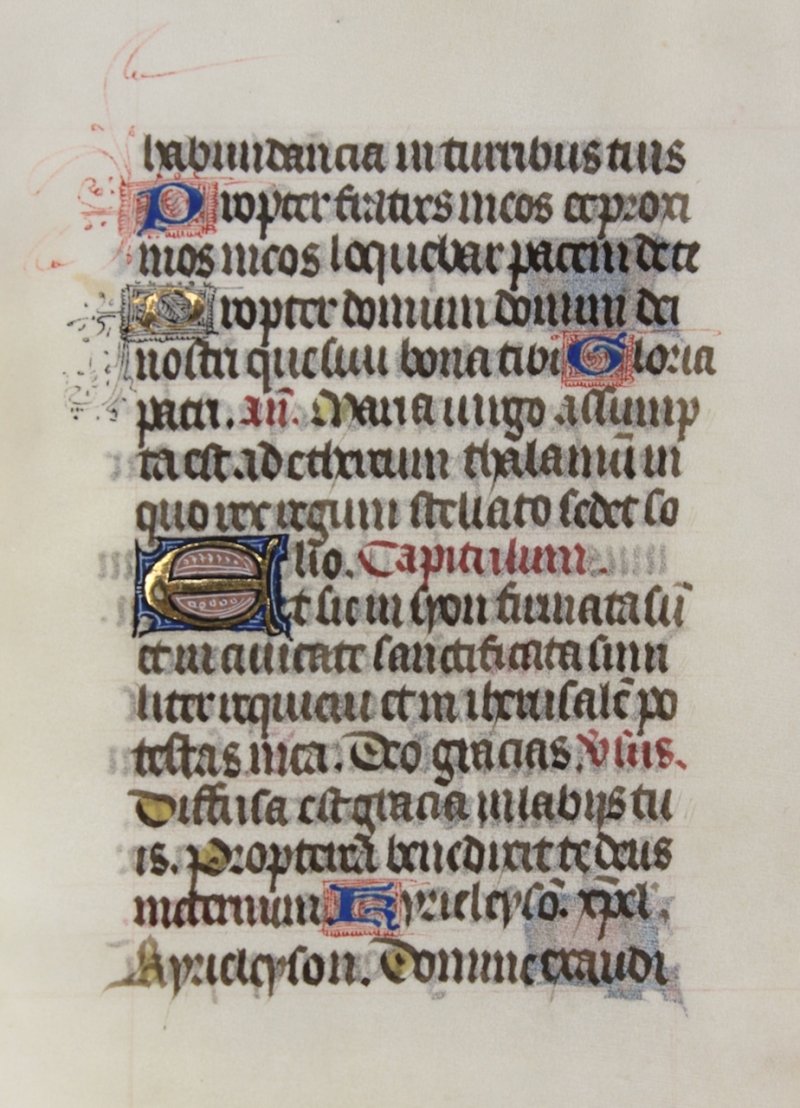 habundancia in turribus tuis
Propter fratres meos et proxi
mos meos loquebar pacem de te
Propter domum domini dei
nostri quesiui bona tibi Gloria
patri. añ. Maria uirgo assump
ta est ad ethereum thalamū in
quo rex regum stellato sedet so
lio. Capitulum.
Et sic in syon firmata sū
et in ciuitate sanctificata simi
liter requieui et in iherusalē po
testas mea. Deo gracias. Vsus.
Diffusa est gracia in labijs tu
is. Propterea benedixit te deus
in eternum Kyrieleysō. xp̄el.
Kyrieleyson. Domine exaudi